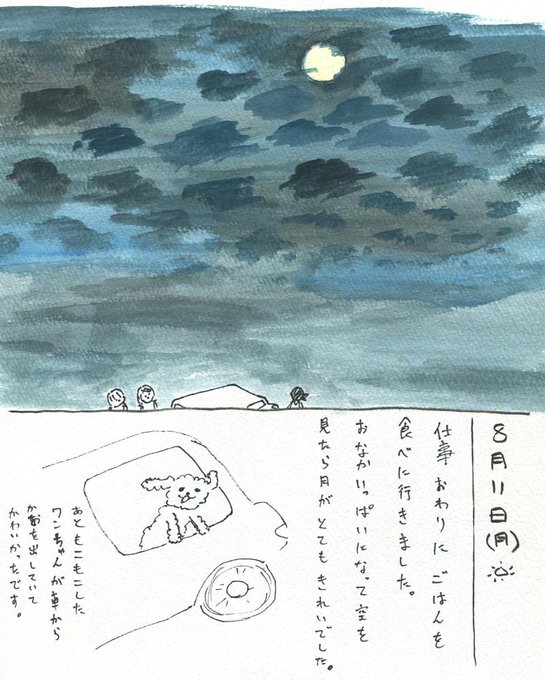 8月11日(月)
仕事おわりにごはんを
食べに行きました。
おなかいっぱいになって空を
見たら月がとてもきれいでした。
あともこもこした
ワンちゃんが車から
顔を出していて
かわいかったです。